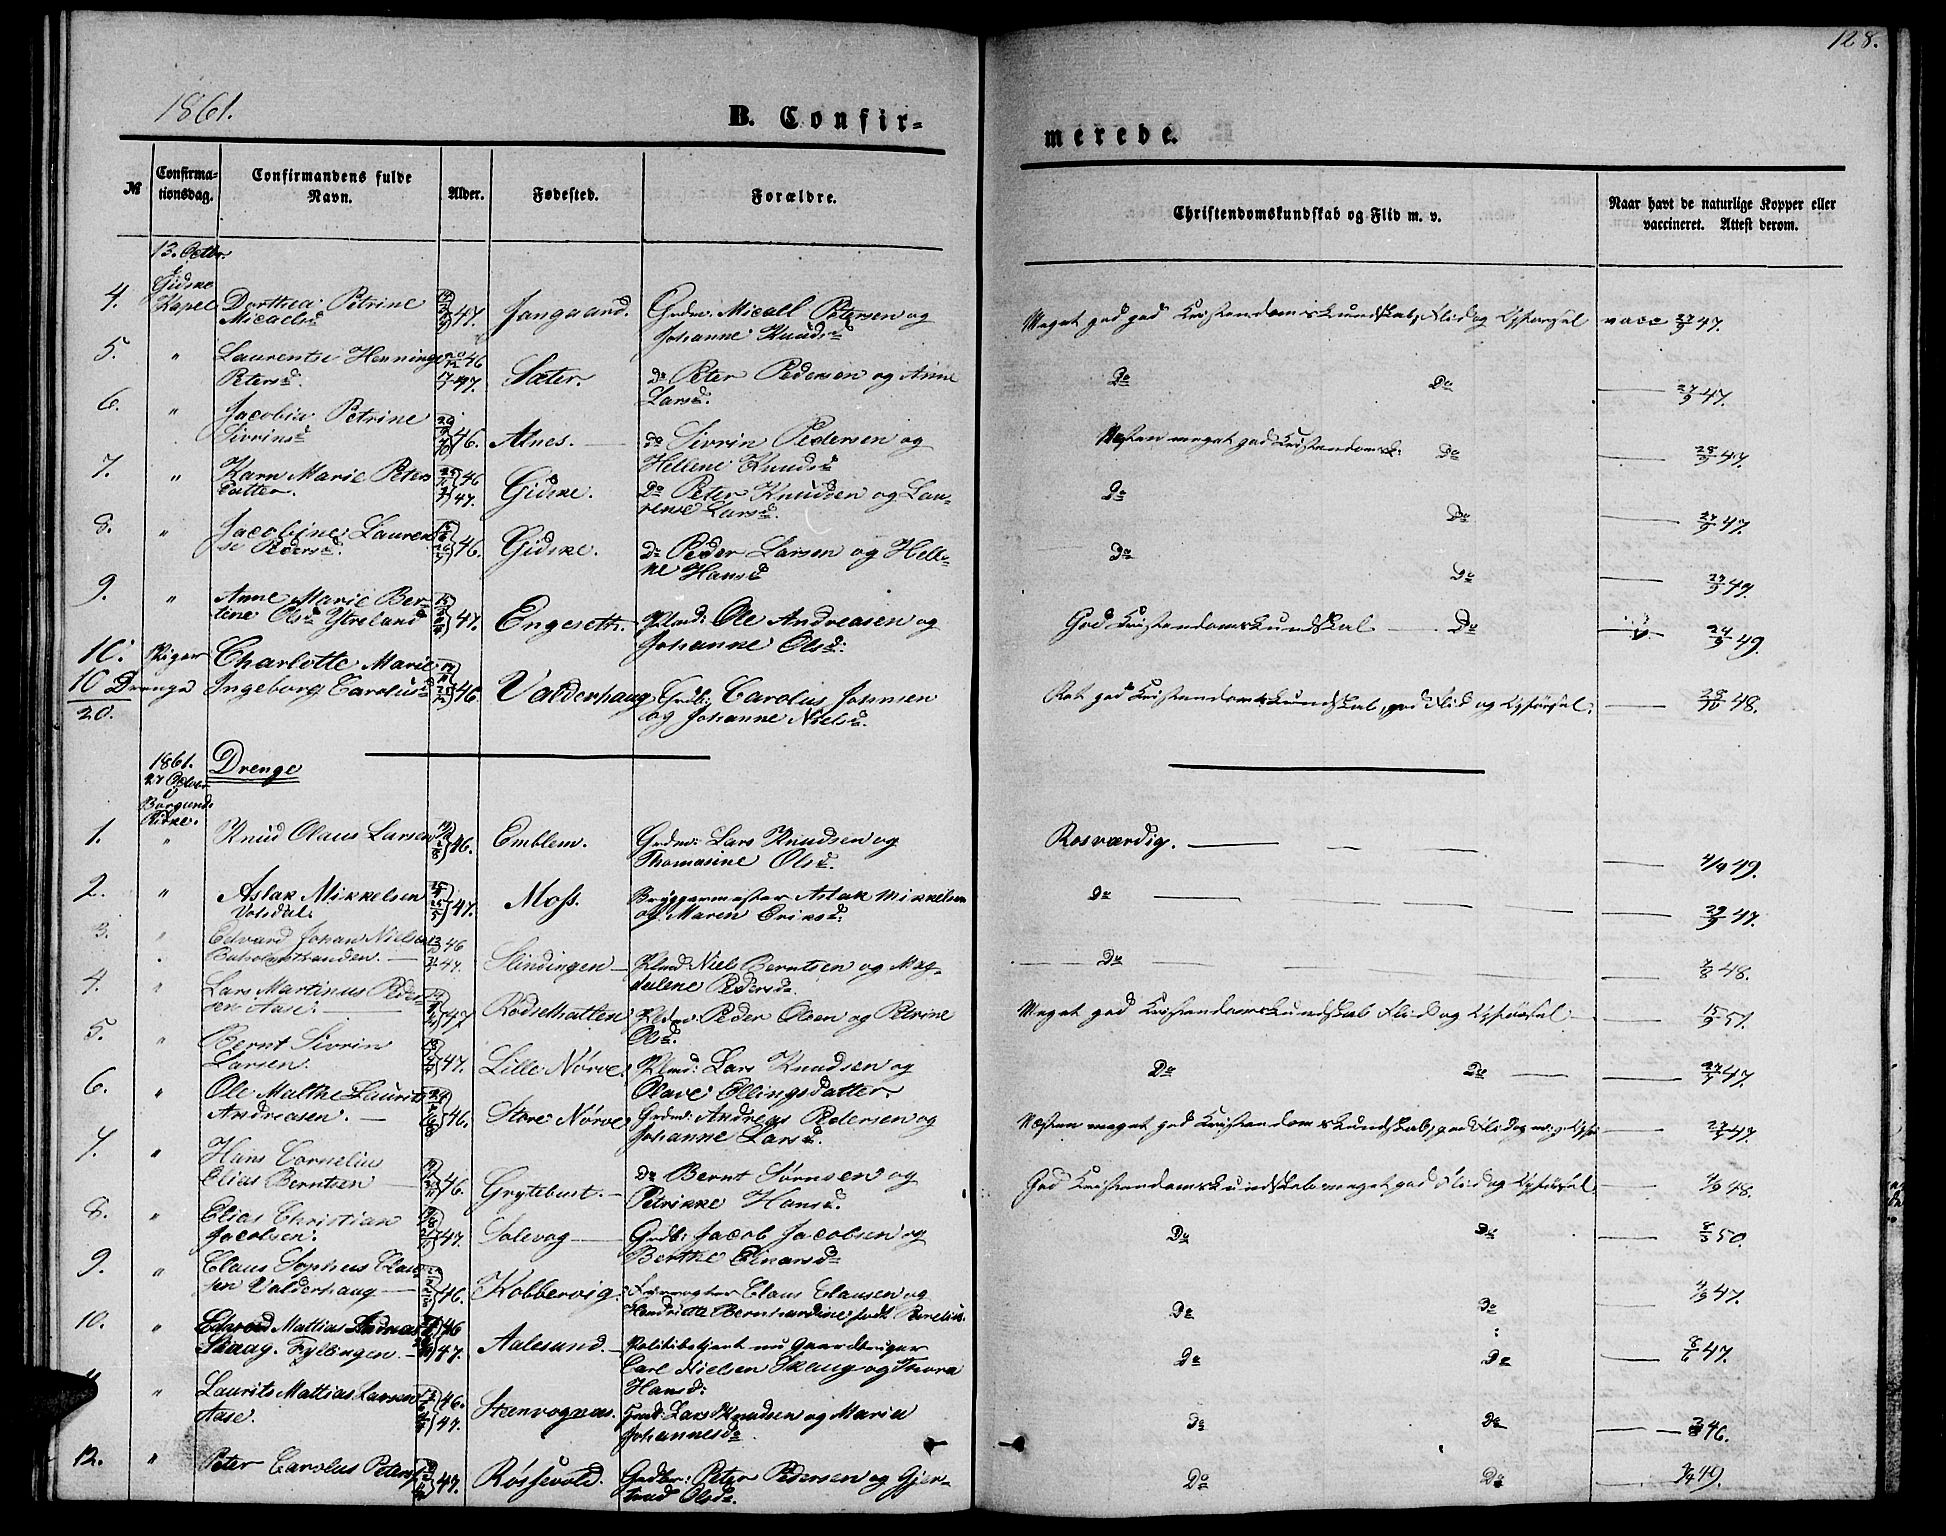 128.
1861.
B. Confir-
merede.
№
Confirma-
tionsdag.
Confirmandens fulde
Navn.
Alder.
Fødested.
Forældre.
Christendomskundskab og Flid m. v.
Naar havt de naturlige Kopper eller
vaccineret. Attest derom.
13. Octbr.
Gidske
Kapel
4. Dorthea Petrine
Micaelsd 47. Jangaard. Grdm: Micael Petersen og
Johanne Knudsd
Meget god Kristendomskundskab, Flid og Opførsel vacc 27/9 47.
5. " Laurentse Henninge
Petersd. 46 47. Sæter. Do Peter Pedersen og Anne
Larsd.
Do Do 27/9 47.
6. " Jacobia Petrine
Sivrinsd 46. Alnes. do Sivrin Pedersen og
Hellene Knudsd
Næsten meget god Kristendomsk: Do 47.
7. " Karn Marie Peters
datter. 46 47. Gidske. Do Peter Knudsen og Lau-
rense Larsd.
Do Do 27/9 47.
8. " Jacobine Lauren
se Pedersd. 46. Gidske. Do Peder Larsen og Helle-
ne Hansd
Do Do 49.
9. " Anne Marie Ber-
tine Olsd Ytreland 47. Engeseth. Plmd: Ole Andreasen og
Johanne Olsd:
God Kristendomskundskab Do 49.
10. Piger Charlotte Marie
10 Drenge Ingeborg Carolusd 46. Valderhaug Grdb: Carolus Johnsen
20. og Johanne Nielsd.
Ret god Kristendomskundskab, god Flid og Opførsel. 48.
1861.
27 Octbr
i
Borgunds
Kirke.
Drenge
1. " Knud Olaus Larsen 46. Emblem. Grdm: Lars Knudsen og
Thomasine Olsd.
Rosværdig. 49.
2. " Aslak Mikkelsen
Volsdal. 47. Moss. Bryggermester Aslak Mikkelsen
og Maren Eriksd.
do 47.
3. " Edvard Johan Nielsen
Buholmstranden. 46 47. Slindingen Plmd Niel Berntsen og Mag-
dalene Pedersd.
Do 48.
4. " Lars Martinus Peder-
sen Aase. 47. Rodsethatten Plmd: Peder Olsen og Petrine
Olsd.
Meget god Kristendomskundskab Flid og Opførsel 15/9 51.
5. " Bernt Sivrin
Larsen. 47. Lille Nørve. Plmd: Lars Knudsen og
Olave Ellingsdatter
Do Do 47.
6. " Ole Malthe Laurits
Andreasen. 46. Store Nørve Grdmd: Andreas Pedersen og
Johanne Larsd.
Næsten meget god Kristendomskundskab, god Flid og 47.
7. " Hans Cornelius
Elias Berntsen 46. Grytebust. Do Bernt Sørnsen og
Petrikke Hansd.
God Kristendomskundskab meget god Flid og Opførsel. 48.
8. " Elias Christian
Jacobsen. 47. Solevog Grdb: Jacob Jacobsen og
Berthe Einarsd.
Do Do 50.
9. " Claus Sophus Clau-
sen Valderhaug 46. Kobbervig. Claus Clausen og
Henriette Bernhardine født
Do Do 47.
10. " Edvard Mattias Andreas
Skaug. Fyllingen. 46 47. Aalesund. Politibetjent nu Gaardbruger
Carl Nielsen Skaug og Thora
Hansd:
Do Do 47.
" Laurits Mattias Larsen
Aase. 46. 47. Steenvognæs. Grdb: Lars Knudsen og Maria
Johannesd.
Do Do 46.
12. " Peter Carolus Peters 47. Røssevold. Grdbr: Peter Pedersen og Gjer-
trud Olsd.
Do Do 49.